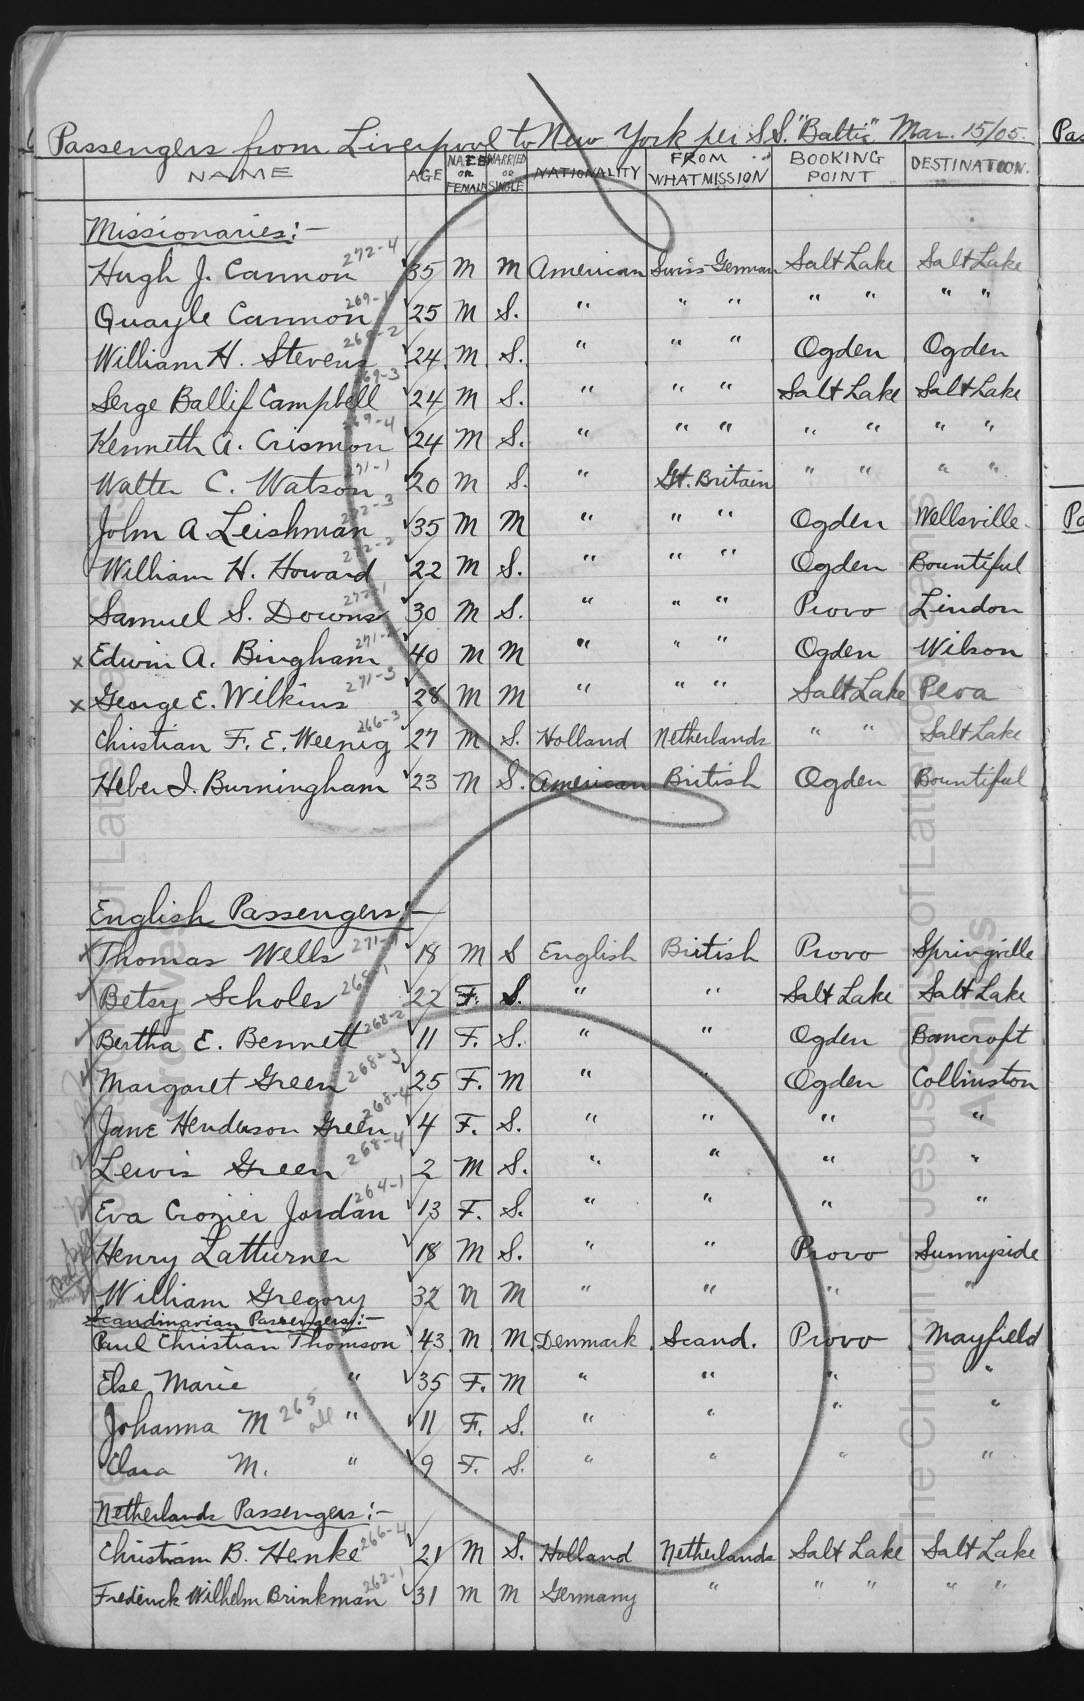 Passengers from Liverpool to New York per S.S. "Baltic" Mar. 15/05.
NAME AGE MALE OR FEMALE MARRIED OR SINGLE NATIONALITY FROM WHAT MISSION BOOKING POINT DESTINATION.
Missionaries:-
Hugh J. Cannon 272-4 35 M M American Swiss German Salt Lake Salt Lake
Quayle Cannon 269-1 25 M S. " " " " " " "
William H. Stevens 269-2 24 M S. " " " Ogden Ogden
Serge Ballif Campbell 269-3 24 M S. " " " Salt Lake Salt Lake
Kenneth A. Crismon 269-4 24 M S. " " " " " " "
Walter C. Watson 271-1 20 M S. " Gt. Britain " " " "
John A Leishman 272-3 35 M M " " " Ogden Wellsville.
William H. Howard 272-2 22 M S. " " " Ogden Bountiful
Samuel S. Downs 272-1 30 M S. " " " Provo Lindon
x Edwin A. Bingham 271- 40 M M " " " Ogden Wilson
x George E. Wilkins 271-3 28 M M " " " Salt Lake Peoa
Christian F. E. Weenig 266-3 27 M S. Holland Netherlands " " Salt Lake
Heber J. Burningham 23 M S. American British Ogden Bountiful
English Passengers:-
Thomas Wells 271- 18 M S English British Provo Springville
Betsy Scholes 268-1 22 F. S. " " Salt Lake Salt Lake
Bertha E. Bennett 268-2 11 F. S. " " Ogden Bancroft
Margaret Green 268-3 25 F. M " " Ogden Collinston
Jane Henderson Green 268-4 4 F. S. " " " "
Lewis Green 268-4 2 M S. " " " "
Eva Crozier Jordan 264-1 13 F. S. " " " "
Henry Latturner 18 M S. " " Provo Sunnyside
William Gregory 32 M M " " " "
Scandinavian Passengers:-
Paul Christian Thomson 43 M M Denmark Scand. Provo Mayfield
Else Marie " 35 F. M " " " "
Johanna M 265 all " 11 F. S. " " " "
Clara M. " 9 F. S. " " " "
Netherlands Passengers:-
Christiam B. Henke 266-4 21 M S. Holland Netherlands Salt Lake Salt Lake
Frederick Wilhelm Brinkman 262-1 31 M M Germany " " " " "